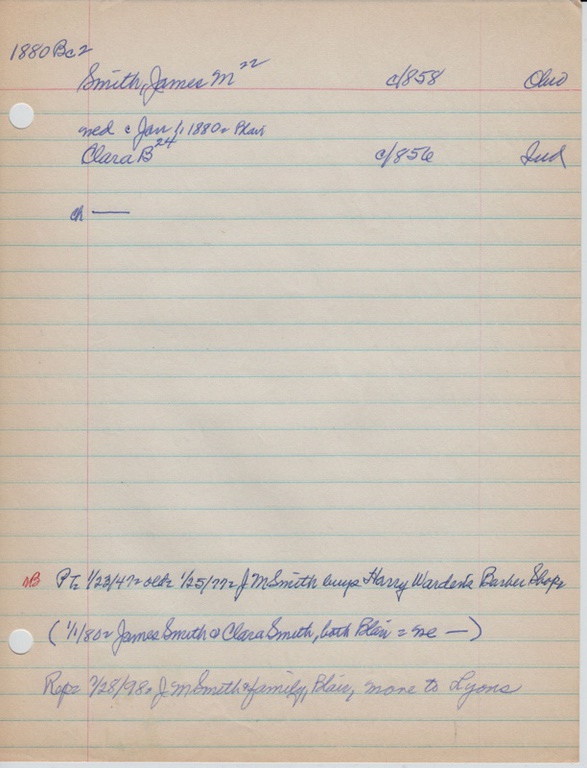 1880 Bc2
Smith, James M 22 c/1858 Ohio
med c Jan 1, 1880 Blair
Clara B 24 c/1856 Ind
ch —
Pt 1/23/47 old 1/25/77 J M Smith buys Harry Warden's Barber Shop
(1/1/80 James Smith & Clara Smith, both Blair = me —)
Rep 7/28/98 J M Smith & family, Blair, move to Lyons